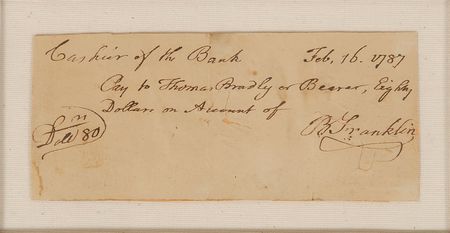 Cashier of the Bank Feb. 16. 1787
Pay to Thomas Bradley or Bearer, Eighty
Dollars on Account of
Dollrs 80
B. Franklin